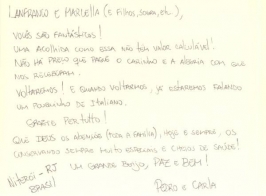 LANFRANCO E MARCELLA (E FILHOS, SOGRA, etc.),
VOCÊS SÃO FANTÁSTICOS!
UMA ACOLHIDA COMO ESSA NÃO TEM VALOR CALCULÁVEL!
NÃO HÁ PREÇO QUE PAGUE O CARINHO E A ALEGRIA COM QUE
NOS RECEBERAM.
VOLTAREMOS! E QUANDO VOLTARMOS, JÁ ESTAREMOS FALANDO
UM POUQUINHO DE ITALIANO.
GRAZIE PER TUTTO!
QUE DEUS OS ABENÇOE (TODA A FAMÍLIA), HOJE E SEMPRE, OS
CONSERVANDO SEMPRE MUITO ESPECIAIS E CHEIOS DE SAÚDE!
UM GRANDE BEIJO, PAZ E BEM!
NITERÓI - RJ
BRASIL
PEDRO E CARLA